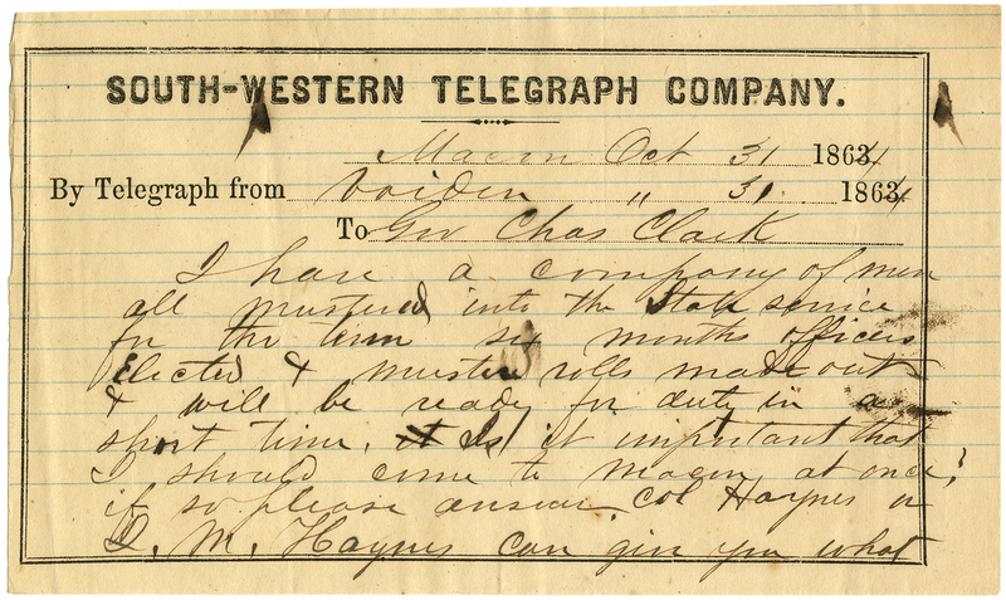 SOUTH-WESTERN TELEGRAPH COMPANY.
Macon Oct 31 1864
By Telegraph from Vaiden " 31. 1864
To Gov Chas Clark
I have a company of men
all mustered into the State service
for the term six months officers
Elected & muster rolls made out
& will be ready for duty in a
short time. Is it important that
I should come to Macon at once?
if so please answer. Col Haynes or
I. M. Haynes can give you what